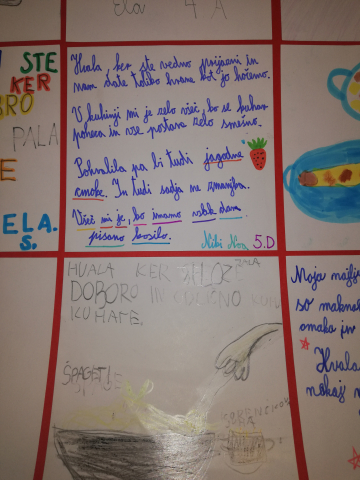 ela 4. A
STE
KER
BRO
PALA
E
ELA.
S.
Hvala, ker ste vedno prijazni in
nam date toliko hrane kot jo hočemo.
V kuhinji mi je zelo všeč, ko se kuhar
poheca in vse postane zelo smešno.
Pohvalila pa bi tudi jagodne
cmoke. In tudi sadja ne zmanjka.
Všeč mi je, ko imamo vsak dan
pisano kosilo.
Niki Noa 5.D
HVALA KER
DOBORO IN ODLIČNO
KUHATE.
ŠPAGETI
KORENČKOVA
JUHA
Moja najlj
so makna
omaka in
Hvala
nekaj n